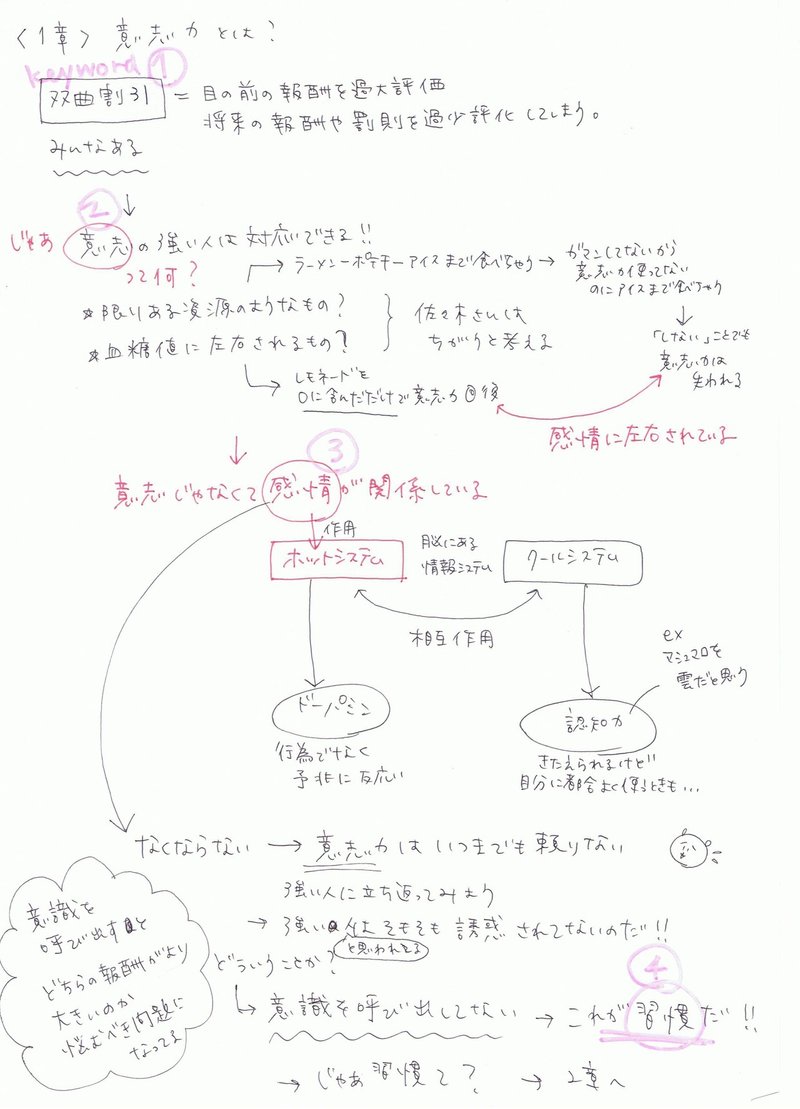 〈1章〉 意志力とは?
keyword ①
双曲割引 = 目の前の報酬を過大評価
将来の報酬や罰則を過少評化してしまう。
みんなある
②
じゃあ 意志の強い人は対応できる!!
って何?
ラーメン→ポテチ→アイスまで食べちゃう → ガマンしてないから
意志力使ってない
のにアイスまで食べちゃう
☆限りある資源のようなもの?
☆血糖値に左右されるもの?
佐々木さんは
ちがうと考える
「しない」ことでも
意志力は
失われる
レモネードを
口に含んだだけで意志力回復
感情に左右されている
③
意志じゃなくて感情が関係している
作用
ホットシステム
脳にある
情報システム
クールシステム
相互作用
ドーパミン
行為でなく
予兆に反応い
ex
マシュマロを
雲だと思う
認知力
きたえられるけど
自分に都合よく使うときも...
なくならない → 意志力はいつまでも頼りない
強い人に立ち返ってみよう
→ 強い人はそもそも誘惑されてないのだ!!
と思われてる
どういうことか?
④
→ 意識を呼び出してない → これが習慣だ!!
→ じゃあ習慣て? → 2章へ
意識を
呼び出すと
どちらの報酬がより
大きいのか
悩むべき問題に
なってる